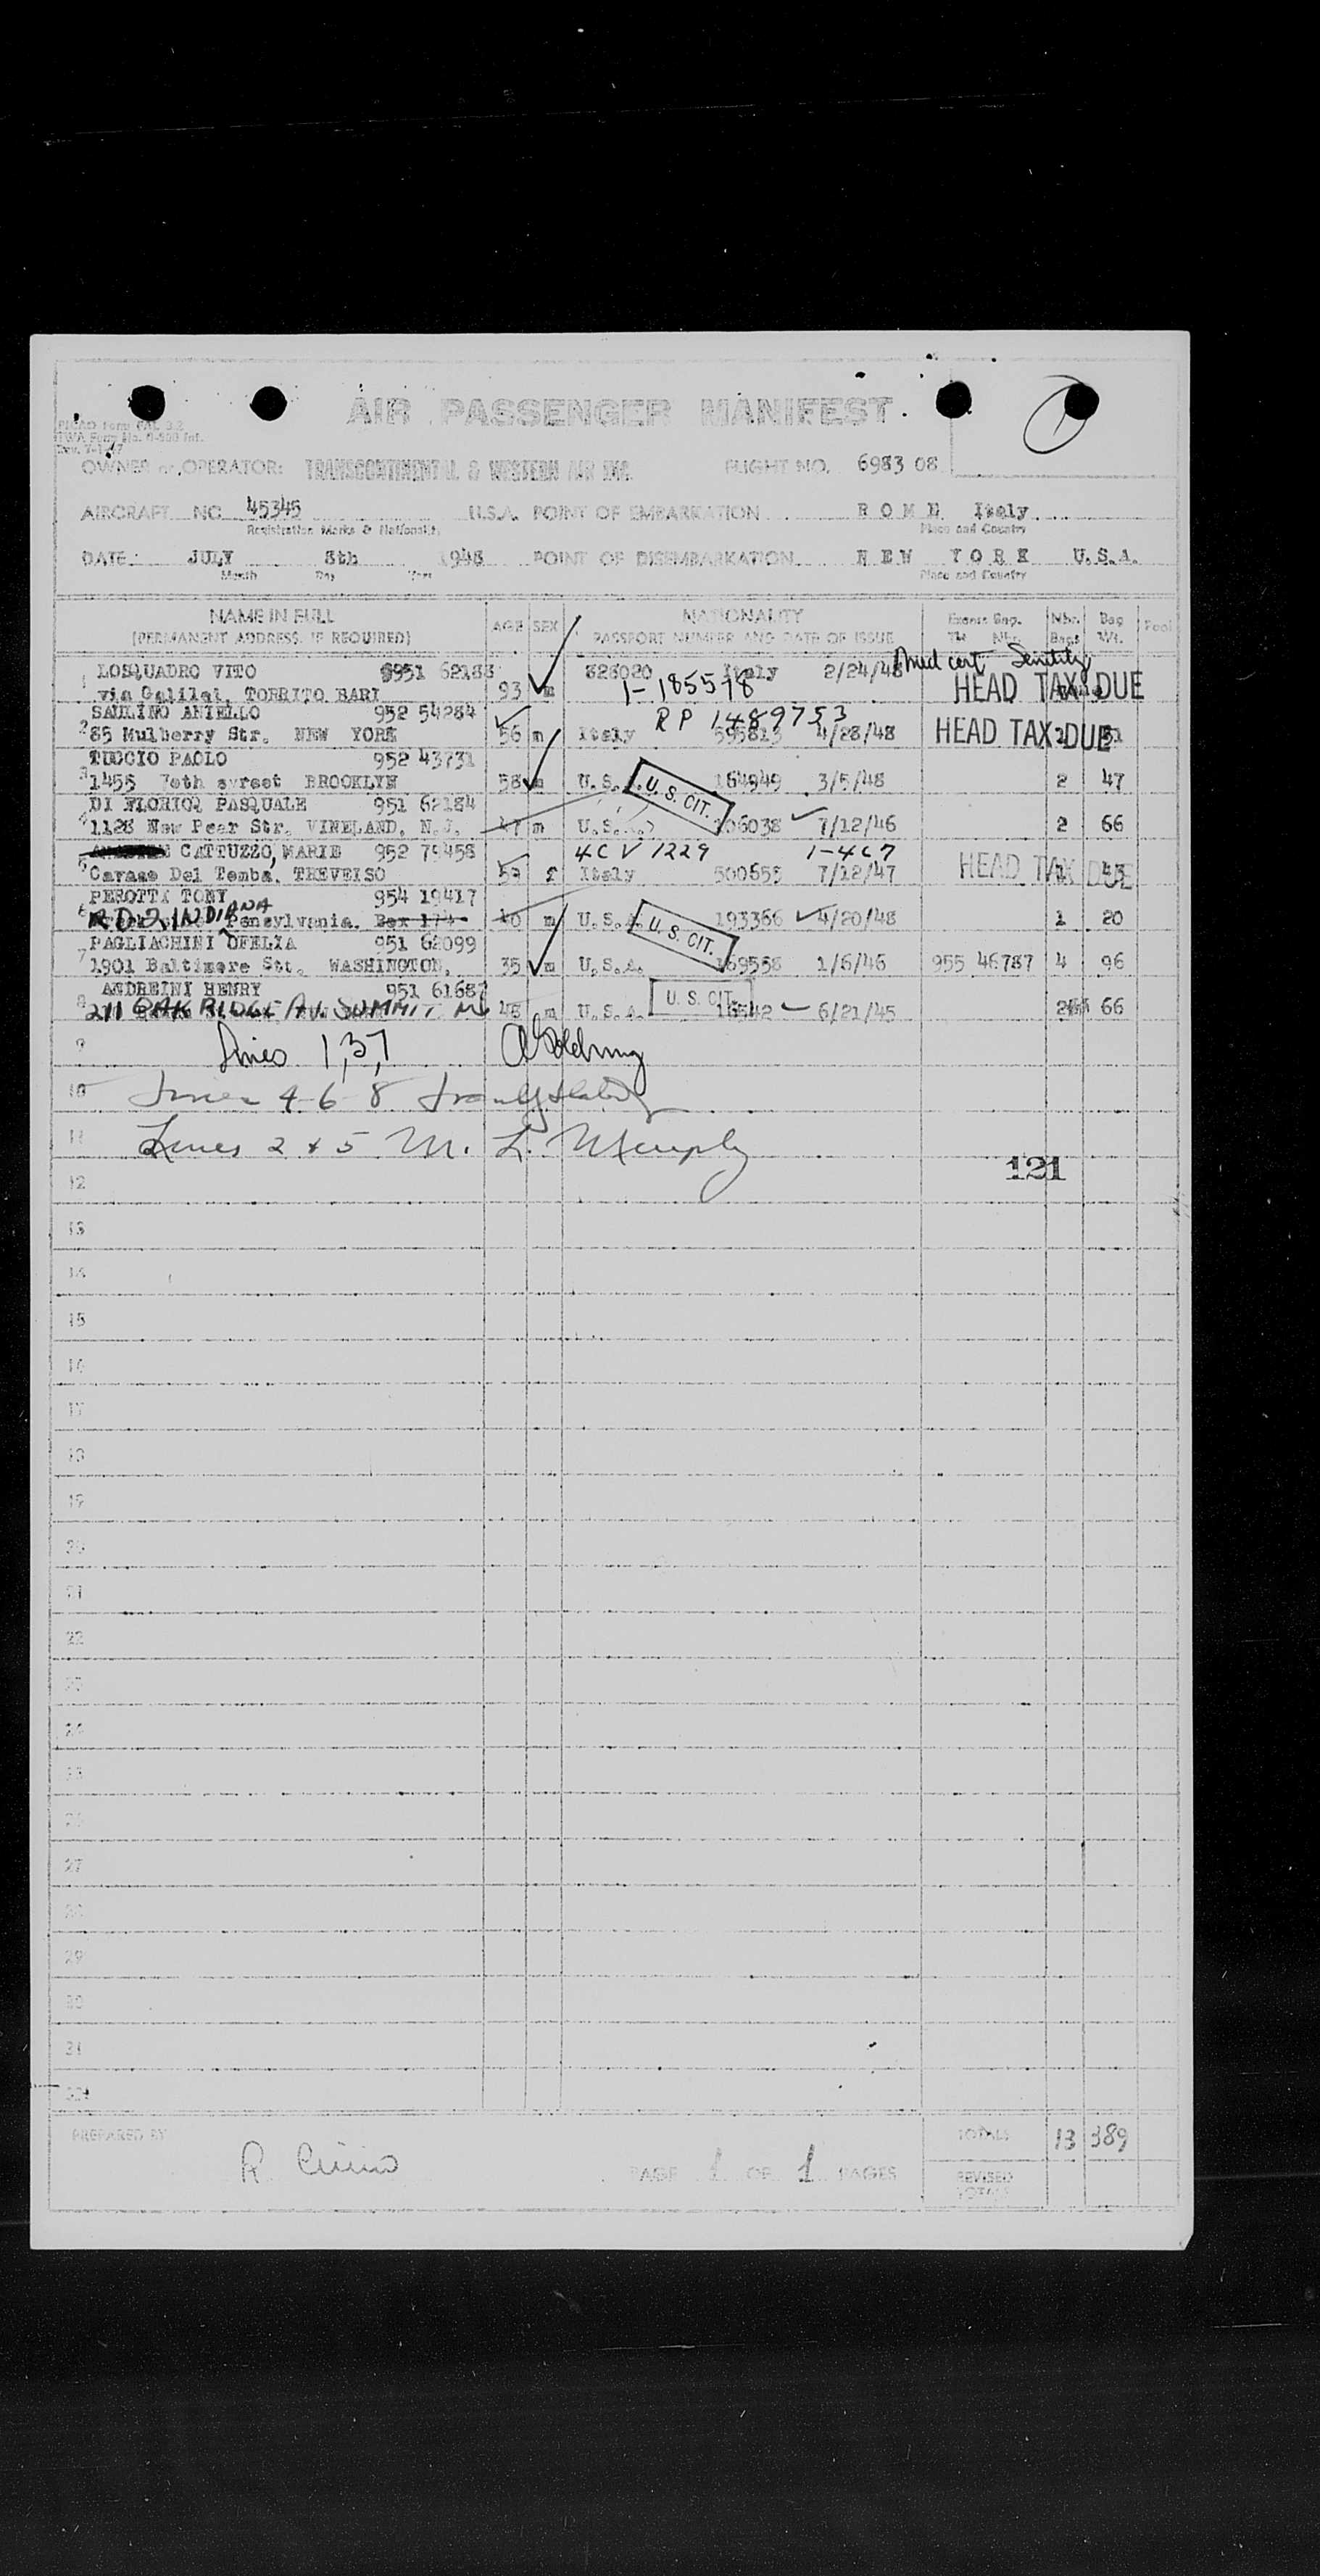 AIR PASSENGER MANIFEST
TWA Form No.
OWNER or OPERATOR: TRANSCONTINENTAL & WESTERN AIR INC. FLIGHT NO. 6983 08
AIRCRAFT NO. 45345 U.S.A. POINT OF EMBARKATION ROME Italy
Registration Marks & Nationality Place and Country
DATE: JULY 8th 1948 POINT OF DISEMBARKATION NEW YORK U.S.A.
Month Day Year Place and Country
NAME IN FULL AGE SEX NATIONALITY Excess Bag. Nbr. Bag
(PERMANENT ADDRESS, IF REQUIRED) PASSPORT NUMBER AND DATE OF ISSUE Tkt Nbr. Bags Wt. Pool
Med cert Senility
1 LOSQUADRO VITO Italy 2/24/48
via Galilei, TORRITO BARI 93 m 1-185578 HEAD TAX DUE
SAULINO ANIELLO 952 54284 RP 1489753
2 85 Mulberry Str. NEW YORK 56 m Italy 595813 4/28/48 HEAD TAX DUE
TUCCIO PAOLO 952 43731
3 1455 street BROOKLYN 58 m U.S.A. U.S. CIT. 164949 3/5/48 2 47
DI FLORIO PASQUALE 951 62184
4 1128 New Pear Str. VINELAND, N.J. 47 m U.S.A. 06038 7/12/46 2 66
CATTUZZO, MARIE 952 79458 4CV 1229 1-467
5 Cavaso Del Tomba. TREVEISO f Italy 500655 7/12/47 HEAD TAX DUE
PEROTTI TONY 954 19417
6 RD 2, INDIANA Pensylvania. Box 174 40 m U.S.A. U.S. CIT. 193366 4/20/48 1 20
PAGLIACHINI OFELIA 951 62099
7 1901 Baltimore Stt. WASHINGTON, 35 m U.S.A. 169558 1/6/46 955 46787 4 96
ANDREINI HENRY 951 61687
8 211 OAK RIDGE AV. SUMMIT NJ 48 m U.S.A. U.S. CIT. 6/21/45 66
9 Lines 1,3,7
10 Lines 4-6-8
11 Lines 2 & 5 M. L. Murphy
12 121
13
14
15
16
17
18
19
20
21
22
23
24
25
26
27
28
29
30
31
32
PREPARED BY TOTALS 13 389
PAGE 1 OF 1 PAGES
REVISED
TOTALS